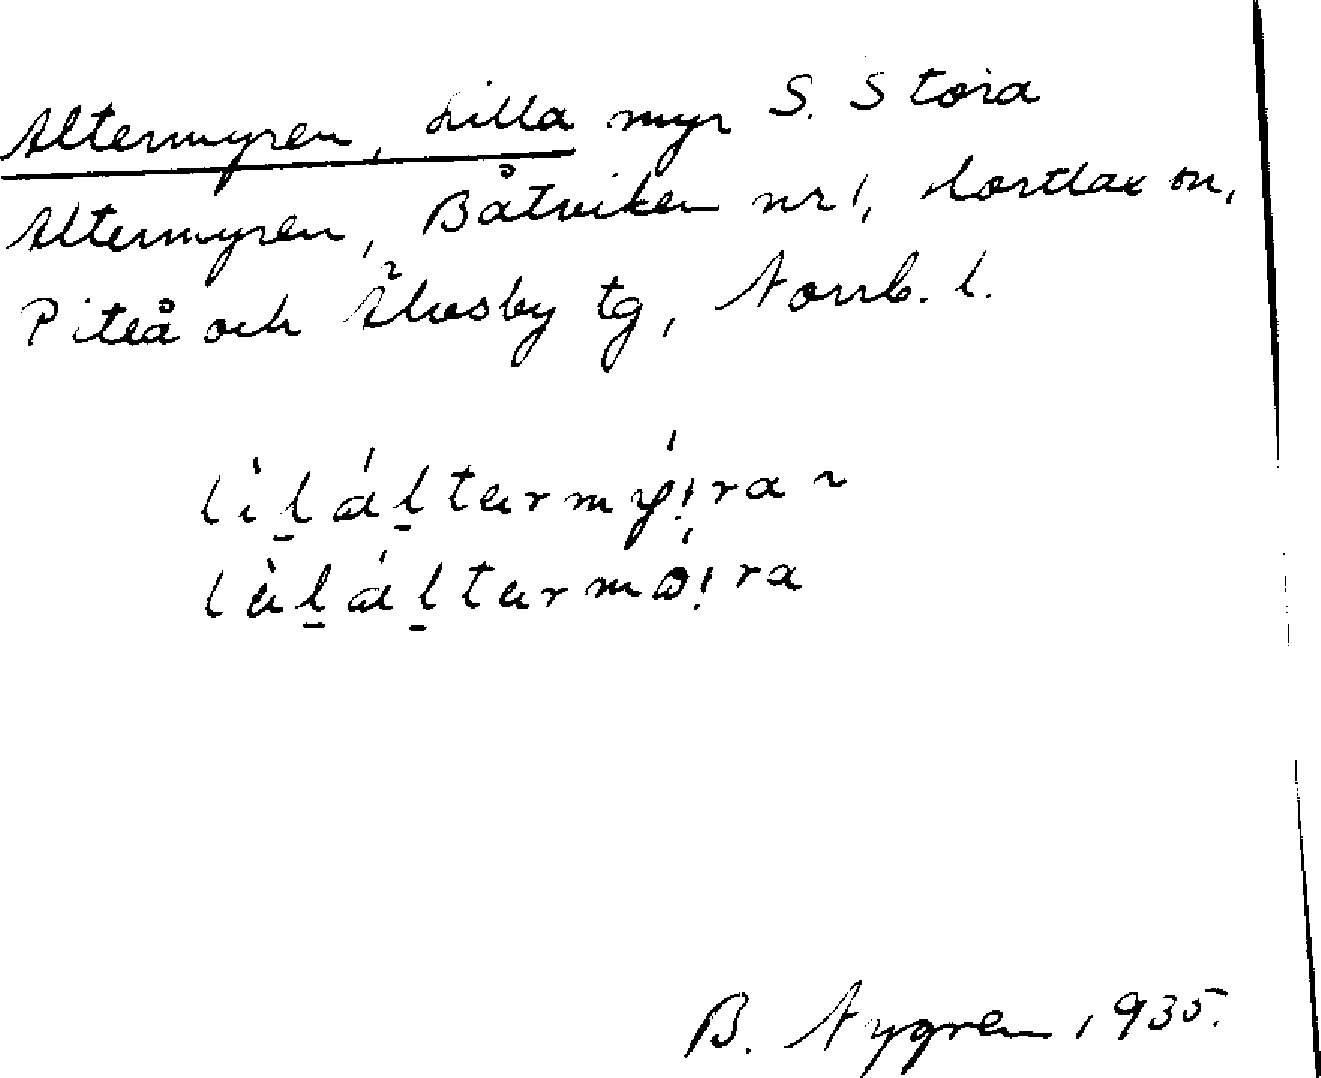 Altermyren, Lilla myr S. Stora
Altermyren, Båtviken nr 1, Hortlax sn,
Piteå och Älvsby tg, Norrb. l.
B. Nygren 1935.